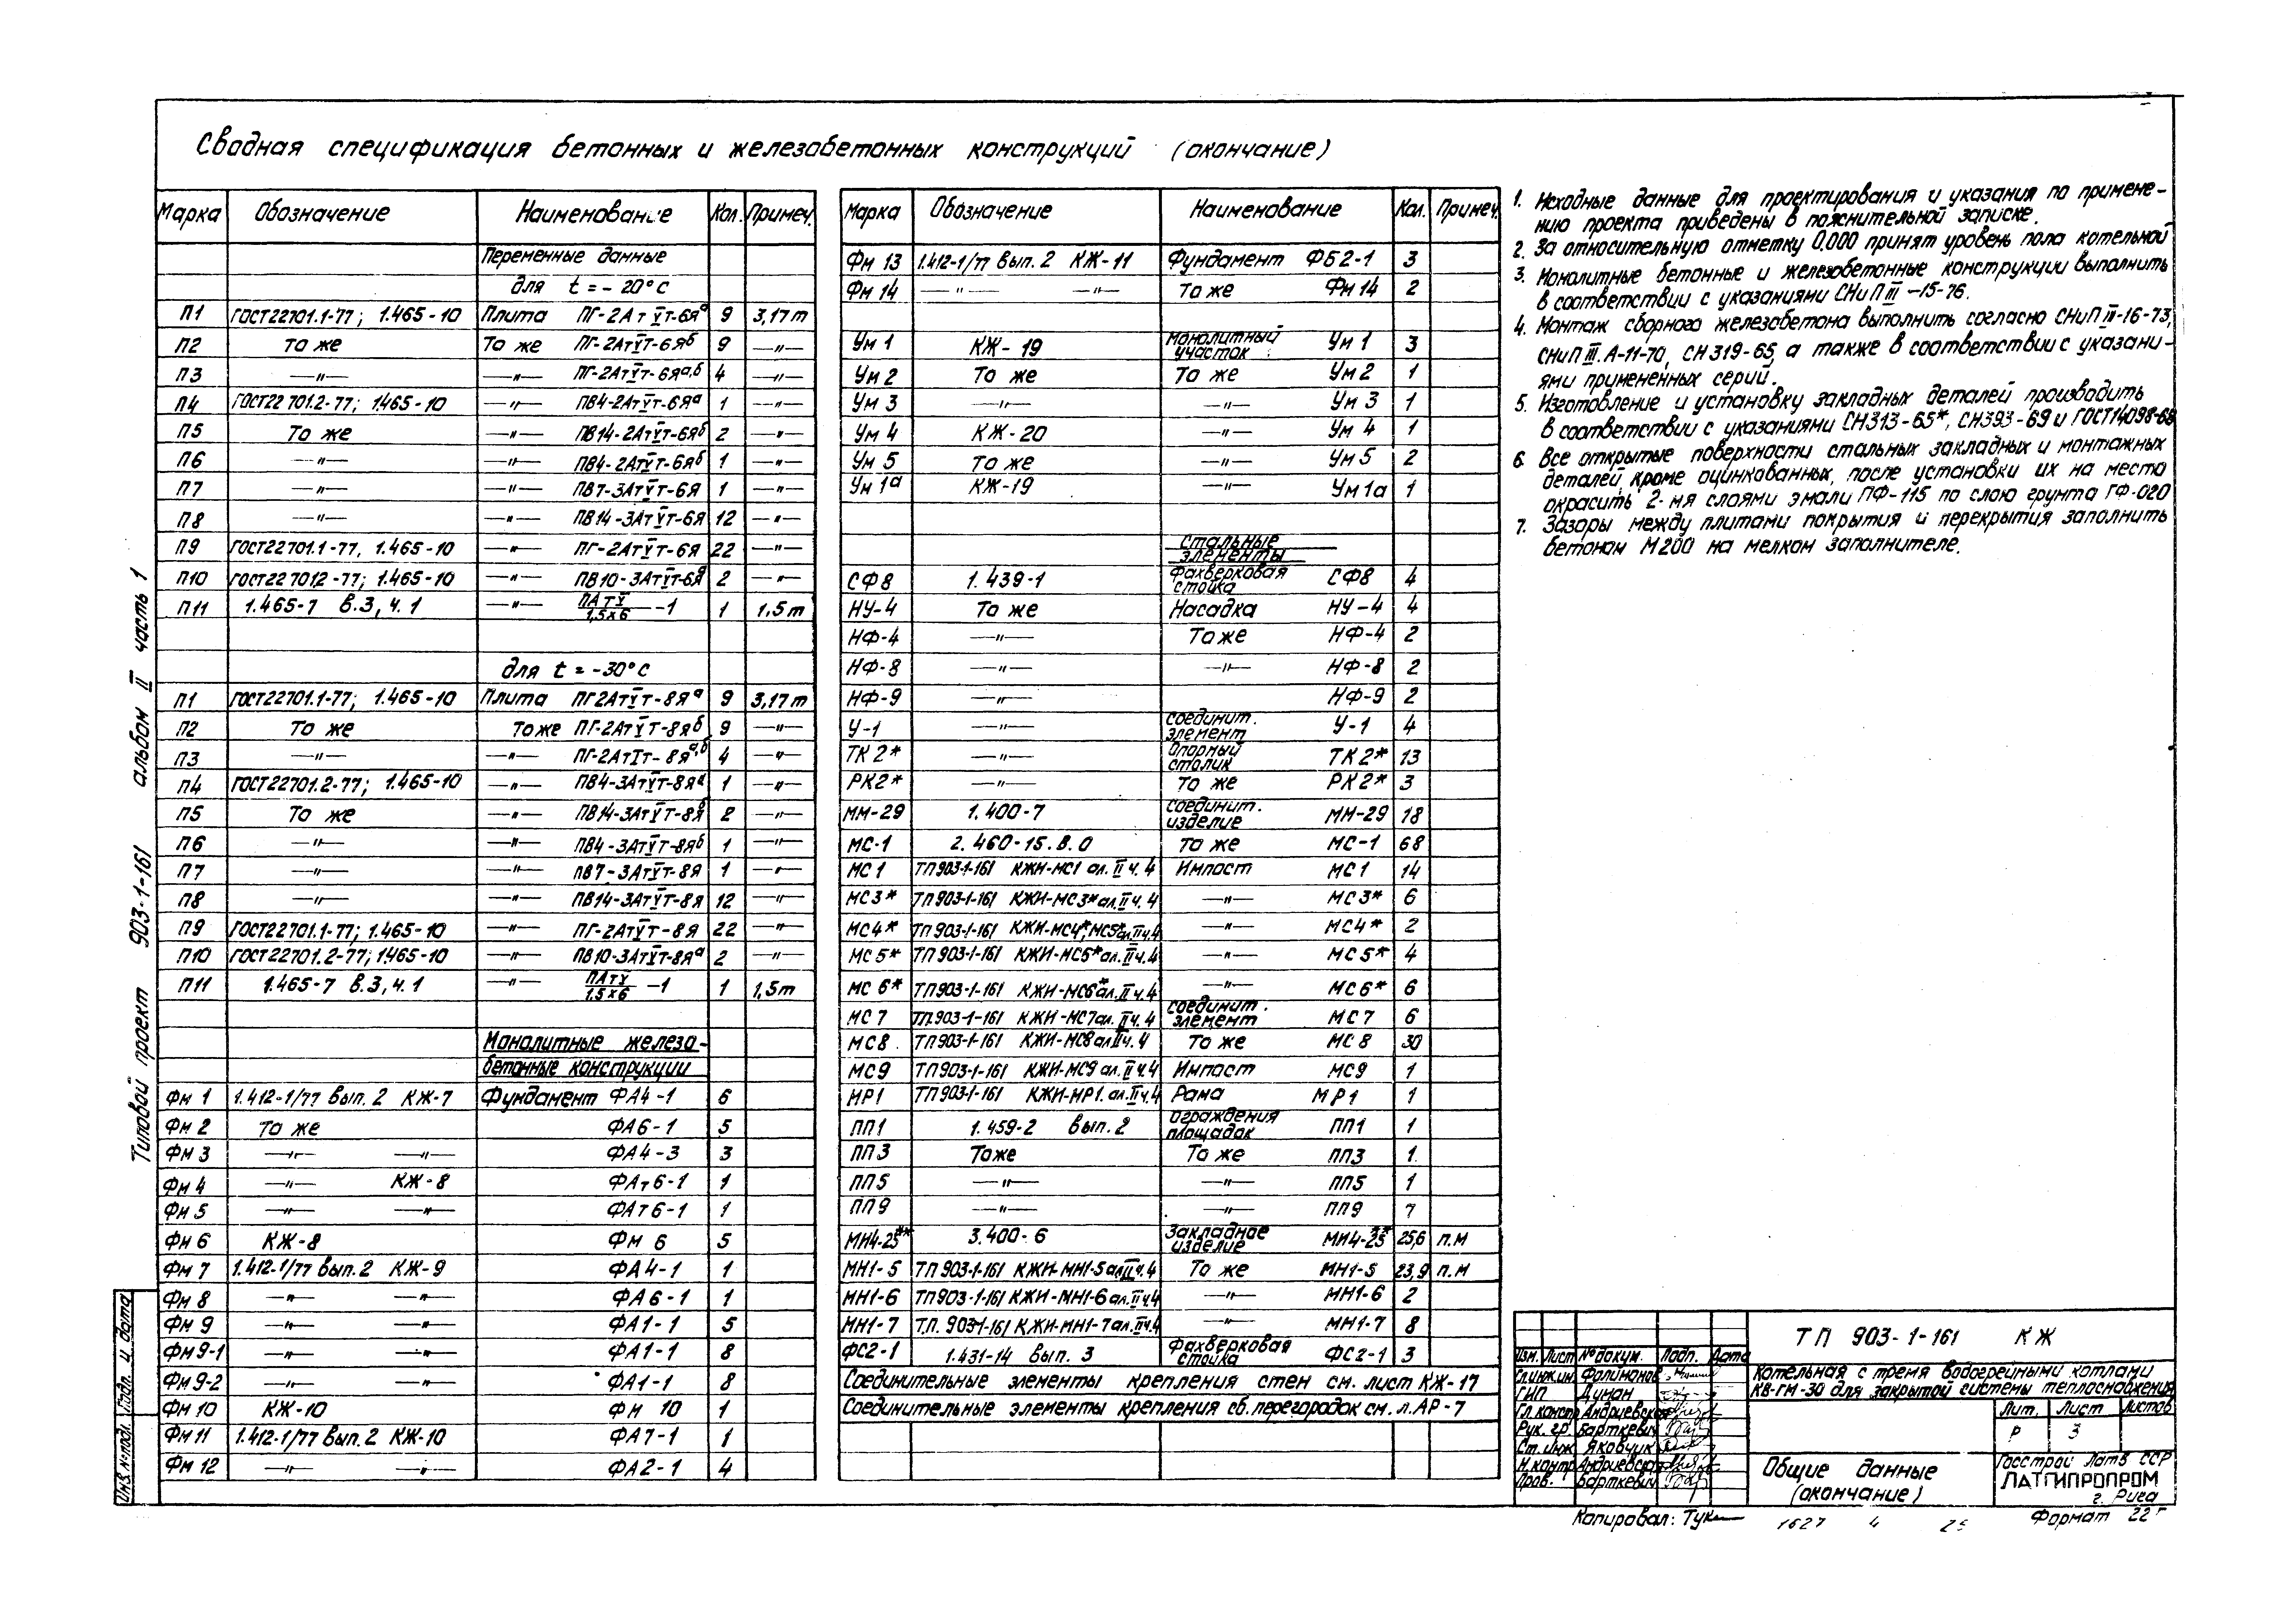 Сводная спецификация бетонных и железобетонных конструкций (окончание)
Марка Обозначение Наименование Кол. Примеч.
Переменные данные
для t = - 20°С
П1 ГОСТ22701.1-77; 1.465-10 Плита ПГ-2АтVт-6Яа 9 3,17т
П2 То же То же ПГ-2АтVт-6Яб 9 —"—
П3 —"— —"— ПГ-2АтVт-6Яа,б 4 —"—
П4 ГОСТ22701.2-77; 1.465-10 —"— ПВ4-2АтVт-6Яа 1 —"—
П5 То же —"— ПВ14-2АтVт-6Яб 2 —"—
П6 —"— —"— ПВ4-2АтVт-6Яб 1 —"—
П7 —"— —"— ПВ7-3АтVт-6Я 1 —"—
П8 —"— —"— ПВ14-3АтVт-6Я 12 —"—
П9 ГОСТ22701.1-77, 1.465-10 —"— ПГ-2АтVт-6Я 22 —"—
П10 ГОСТ22701.2-77; 1.465-10 —"— ПВ10-3АтVт-6Яа 2 —"—
П11 1.465-7 В.3, ч.1 —"— ПАтV/1,5х6 -1 1 1,5т
для t = -30°С
П1 ГОСТ22701.1-77; 1.465-10 Плита ПГ2АтVт-8Яа 9 3,17т
П2 То же То же ПГ-2АтVт-8Яб 9 —"—
П3 —"— —"— ПГ-2АтIт-8Яа,б 4 —"—
П4 ГОСТ22701.2-77; 1.465-10 —"— ПВ4-3АтVт-8Яа 1 —"—
П5 То же —"— ПВ14-3АтVт-8Яб 2 —"—
П6 —"— —"— ПВ4-3АтVт-8Яб 1 —"—
П7 —"— —"— ПВ7-3АтVт-8Я 1 —"—
П8 —"— —"— ПВ14-3АтVт-8Я 12 —"—
П9 ГОСТ22701.1-77; 1.465-10 —"— ПГ-2АтVт-8Я 22 —"—
П10 ГОСТ22701.2-77; 1.465-10 —"— ПВ10-3АтVт-8Яа 2 —"—
П11 1.465-7 В.3, ч.1 —"— ПАтV/1.5х6 -1 1 1,5т
Монолитные железо-
бетонные конструкции
Фм 1 1.412-1/77 Вып. 2 КЖ-7 Фундамент ФА4-1 6
Фм 2 То же ФА6-1 5
Фм 3 —"— —"— ФА4-3 3
Фм 4 —"— КЖ-8 ФАт6-1 1
Фм 5 —"— —"— ФАт6-1 1
Фм 6 КЖ-8 Фм 6 5
Фм 7 1.412-1/77 Вып. 2 КЖ-9 ФА4-1 1
Фм 8 —"— —"— ФА6-1 1
Фм 9 —"— —"— ФА1-1 5
Фм9-1 —"— —"— ФА1-1 8
Фм9-2 —"— —"— ФА1-1 8
Фм 10 КЖ-10 Фм 10 1
Фм 11 1.412-1/77 Вып. 2 КЖ-10 ФА7-1 1
Фм 12 —"— —"— ФА2-1 4
Марка Обозначение Наименование Кол. Примеч.
Фм 13 1.412-1/77 Вып. 2 КЖ-11 Фундамент ФБ2-1 3
Фм 14 —"— —"— То же Фм 14 2
Ум 1 КЖ-19 Монолитный участок Ум 1 3
Ум 2 То же То же Ум 2 1
Ум 3 —"— —"— Ум 3 1
Ум 4 КЖ-20 —"— Ум 4 1
Ум 5 То же —"— Ум 5 2
Ум 1а КЖ-19 —"— Ум1а 1
Стальные
элементы
СФ8 1.439-1 Фахверковая стойка СФ8 4
НУ-4 То же Насадка НУ-4 4
НФ-4 —"— То же НФ-4 2
НФ-8 —"— —"— НФ-8 2
НФ-9 —"— НФ-9 2
У-1 —"— соединит. элемент У-1 4
ТК 2* —"— Опорный столик ТК 2* 13
РК2* —"— То же РК2* 3
ММ-29 1.400-7 соединит. изделие ММ-29 18
МС-1 2.460-15.В.0 То же МС-1 68
МС 1 ТП903-1-161 КЖИ-МС1 ал. II ч. 4 Импост МС 1 14
МС3* ТП903-1-161 КЖИ-МС3* ал. II ч. 4 —"— МС3* 6
МС4* ТП903-1-161 КЖИ-МС4*, МС5* ал. II ч.4 —"— МС4* 2
МС 5* ТП903-1-161 КЖИ-МС5* ал. II ч.4 —"— МС5* 4
МС 6* ТП903-1-161 КЖИ-МС6* ал. II ч.4 —"— МС6* 6
МС 7 ТП.903-1-161 КЖИ-МС7 ал. II ч.4 соединит. элемент МС 7 6
МС8 ТП903-1-161 КЖИ-МС8 ал. II ч.4 То же МС 8 30
МС9 ТП903-1-161 КЖИ-МС9 ал. II ч.4 Импост МС9 1
МР1 ТП903-1-161 КЖИ-МР1. ал. II ч.4 Рама МР1 1
ПП1 1.459-2 Вып. 2 Ограждения площадок ПП1 1
ПП3 То же То же ПП3 1
ПП5 —"— —"— ПП5 1
ПП9 —"— —"— ПП9 7
МИ4-25** 3.400-6 Закладное изделие МИ4-25** 25,6 п.м
МН1-5 ТП903-1-161 КЖИ-МН1-5 ал. II ч.4 То же МН1-5 23,9 п.м
МН1-6 ТП903-1-161 КЖИ-МН1-6 ал. II ч.4 —"— МН1-6 2
МН1-7 Т.П. 903-1-161 КЖИ-МН1-7 ал. II ч.4 —"— МН1-7 8
ФС2-1 1.431-14 Вып. 3 Фахверковая стойка ФС2-1 3
Соединительные элементы крепления стен см. лист КЖ-17
Соединительные элементы крепления сб. перегородок см. л. АР-7
1. Исходные данные для проектирования и указания по примене-
нию проекта приведены в пояснительной записке.
2. За относительную отметку 0.000 принят уровень пола котельной
3. Монолитные бетонные и железобетонные конструкции выполнить
в соответствии с указаниями СНиП III-15-76.
4. Монтаж сборного железобетона выполнить согласно СНиП III-16-73,
СНиП III.А-11-70, СН 319-65, а также в соответствии с указани-
ями примененных серий.
5. Изготовление и установку закладных деталей производить
в соответствии с указаниями СН313-65*, СН393-69 и ГОСТ14098-68
6. Все открытые поверхности стальных закладных и монтажных
деталей, кроме оцинкованных, после установки их на место
окрасить 2-мя слоями эмали ПФ-115 по слою грунта ГФ-020
7. Зазоры между плитами покрытия и перекрытия заполнить
бетоном М200 на мелком заполнителе.
Типовой проект 903-1-161 альбом II часть 1
Инв. № подл. Подп. и дата
Изм. Лист № докум. Подп. Дата
Гл.инж.ин. Фалимонов
ГИП Думан
Гл. констр Андриевская
Рук. гр. Барткевич
Ст. инж Яковчик
Н. контр Андриевская
Пров. Барткевич
ТП 903-1-161 КЖ
Котельная с тремя водогрейными котлами
КВ-ГМ-30 для закрытой системы теплоснабжения
Лит. Лист Листов
Р 3
Общие данные
(окончание)
Госстрой Латв ССР
ЛАТГИПРОПРОМ
г. Рига
Копировал: Тук
1627 4
Формат 22г